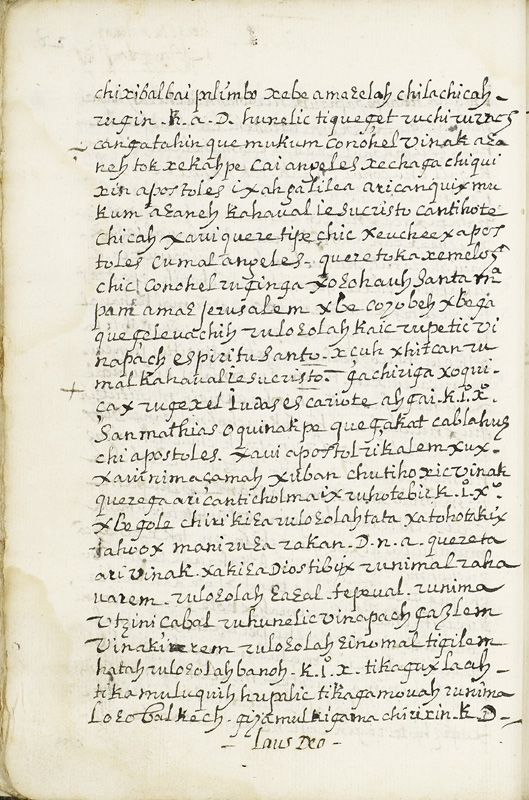 chixibalbai palimbo xebe amaɛelah chilachicah –
rugin. K. a. D. hunelic tiqueget ruchi ruvach
cangatahin que mukum conohel vinak aɛa
neh tok xekahpe cai angeles xechaga chiqui
xin apostoles ix ah galilea aricanquix mu
kum aɛaneh kahaval iesucristo cantihote
chicah xavi quere tipe chic xeucheex apos
toles cumal angeles. quere toka xemeloz
chic conohel ruginga xoɛohauh Santa mª
pam amaɛ Jerusalem xbe coyobeh xbega
que geleuachih ruloɛolah kaic rupetic vi
napach espiritu santo. xcuh xhitcan ru
mal kahaval iesucristo. gachiriga xoqui
cax rugexel Iudas escariote ahgai. K. i. x.
San mathias oquinakpe que gakat cablahuh
chi apostoles. Xavi apostol rikalem xux.
xavi nima çamah xuban chutihoxic vinak
querega ari canticholmaix ruhotebic K. i. x.
xbe gole chirikiɛa ruloɛolah tata xatohotakix
rahoox maniruɛa rakan. D. n. a. quereta
ari vinak. xakiɛa Dios tibix runimal raha
uarem. ruloɛolah ɛaɛal. tepeual. runima
utzinicabal ruhunelic vinapach gaɛlem
Vinakirem ruloɛolah ɛinomal tigilem
hatah ruloɛolah banoh. K. i. x. tikagux laah –
tikamuluquih hupalic tikagamovah runima
loɛobal kech. giya mulkigama chirixin. K. D –
– laus Deo –